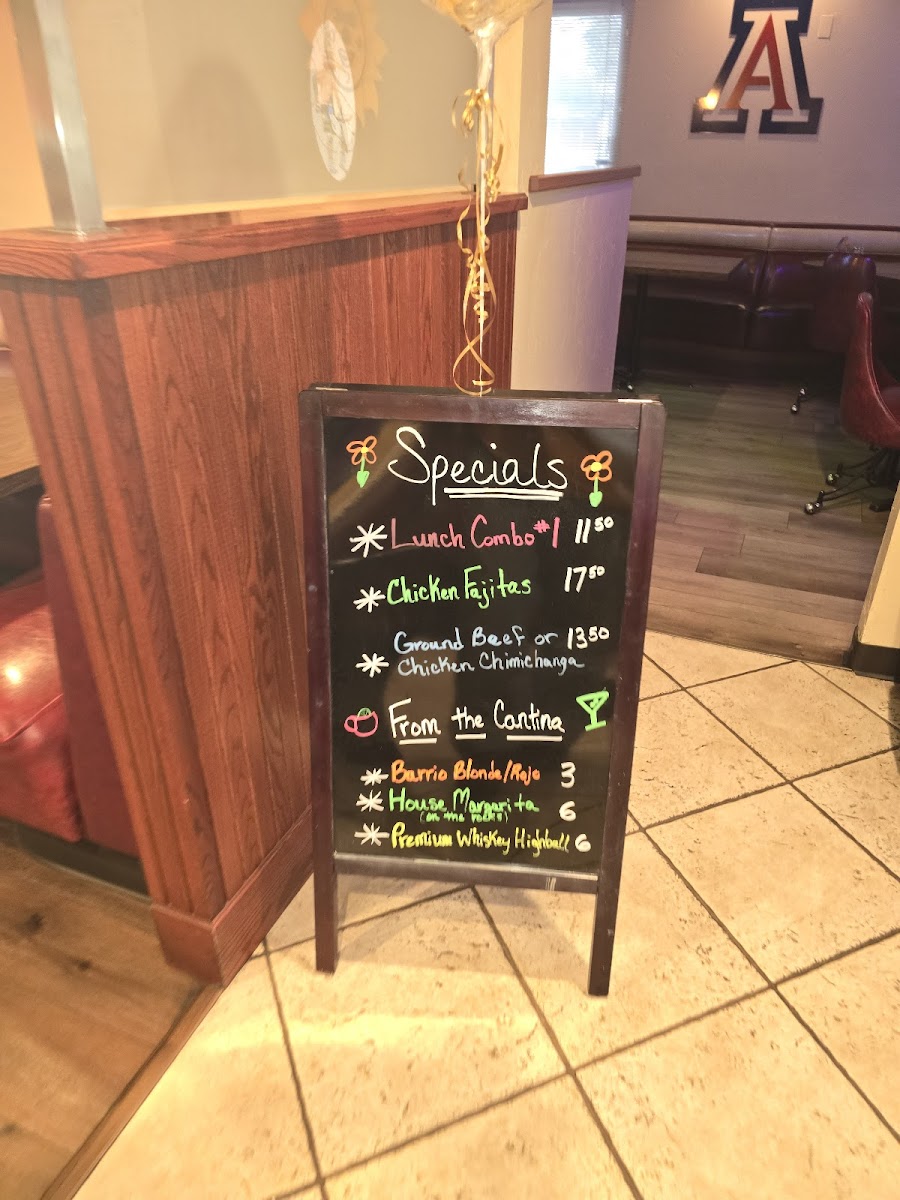 A
Specials
Lunch Combo #1 11 50
Chicken Fajitas 17 50
Ground Beef or 13 50
Chicken Chimichanga
From the Cantina
Barrio Blonde/Rojo 3
House Margarita 6
(on the rocks)
Premium Whiskey Highball 6